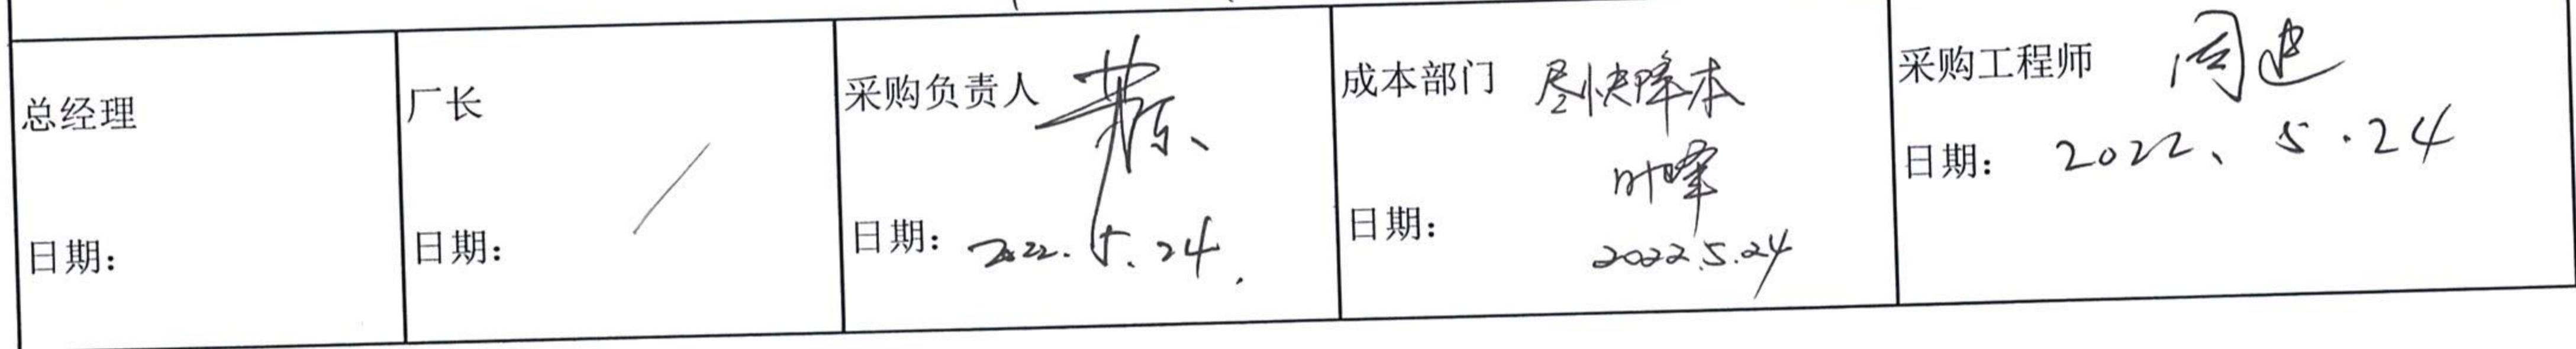 总经理
日期：
厂长
/
日期：
采购负责人
日期：2022.5.24.
成本部门 尽快降本
叶峰
日期：2022.5.24
采购工程师 周建
日期：2022、5.24